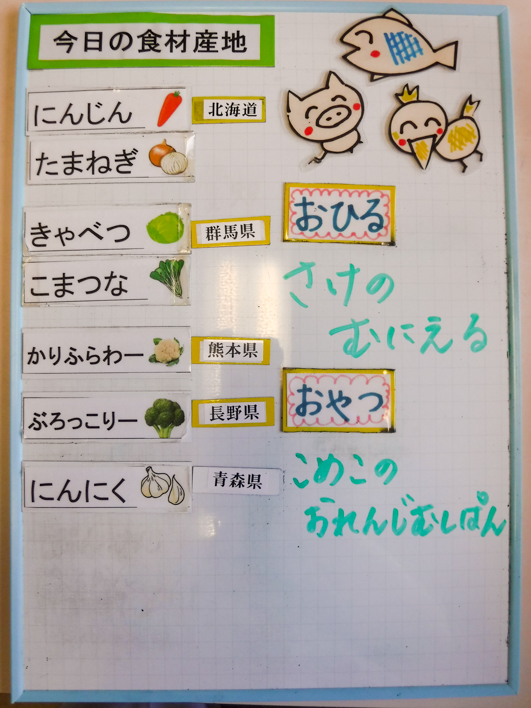 今日の食材産地
にんじん 北海道
たまねぎ
きゃべつ 群馬県
こまつな
かりふらわー 熊本県
ぶろっこりー 長野県
にんにく 青森県
おひる
さけの
むにえる
おやつ
こめこの
おれんじむしぱん